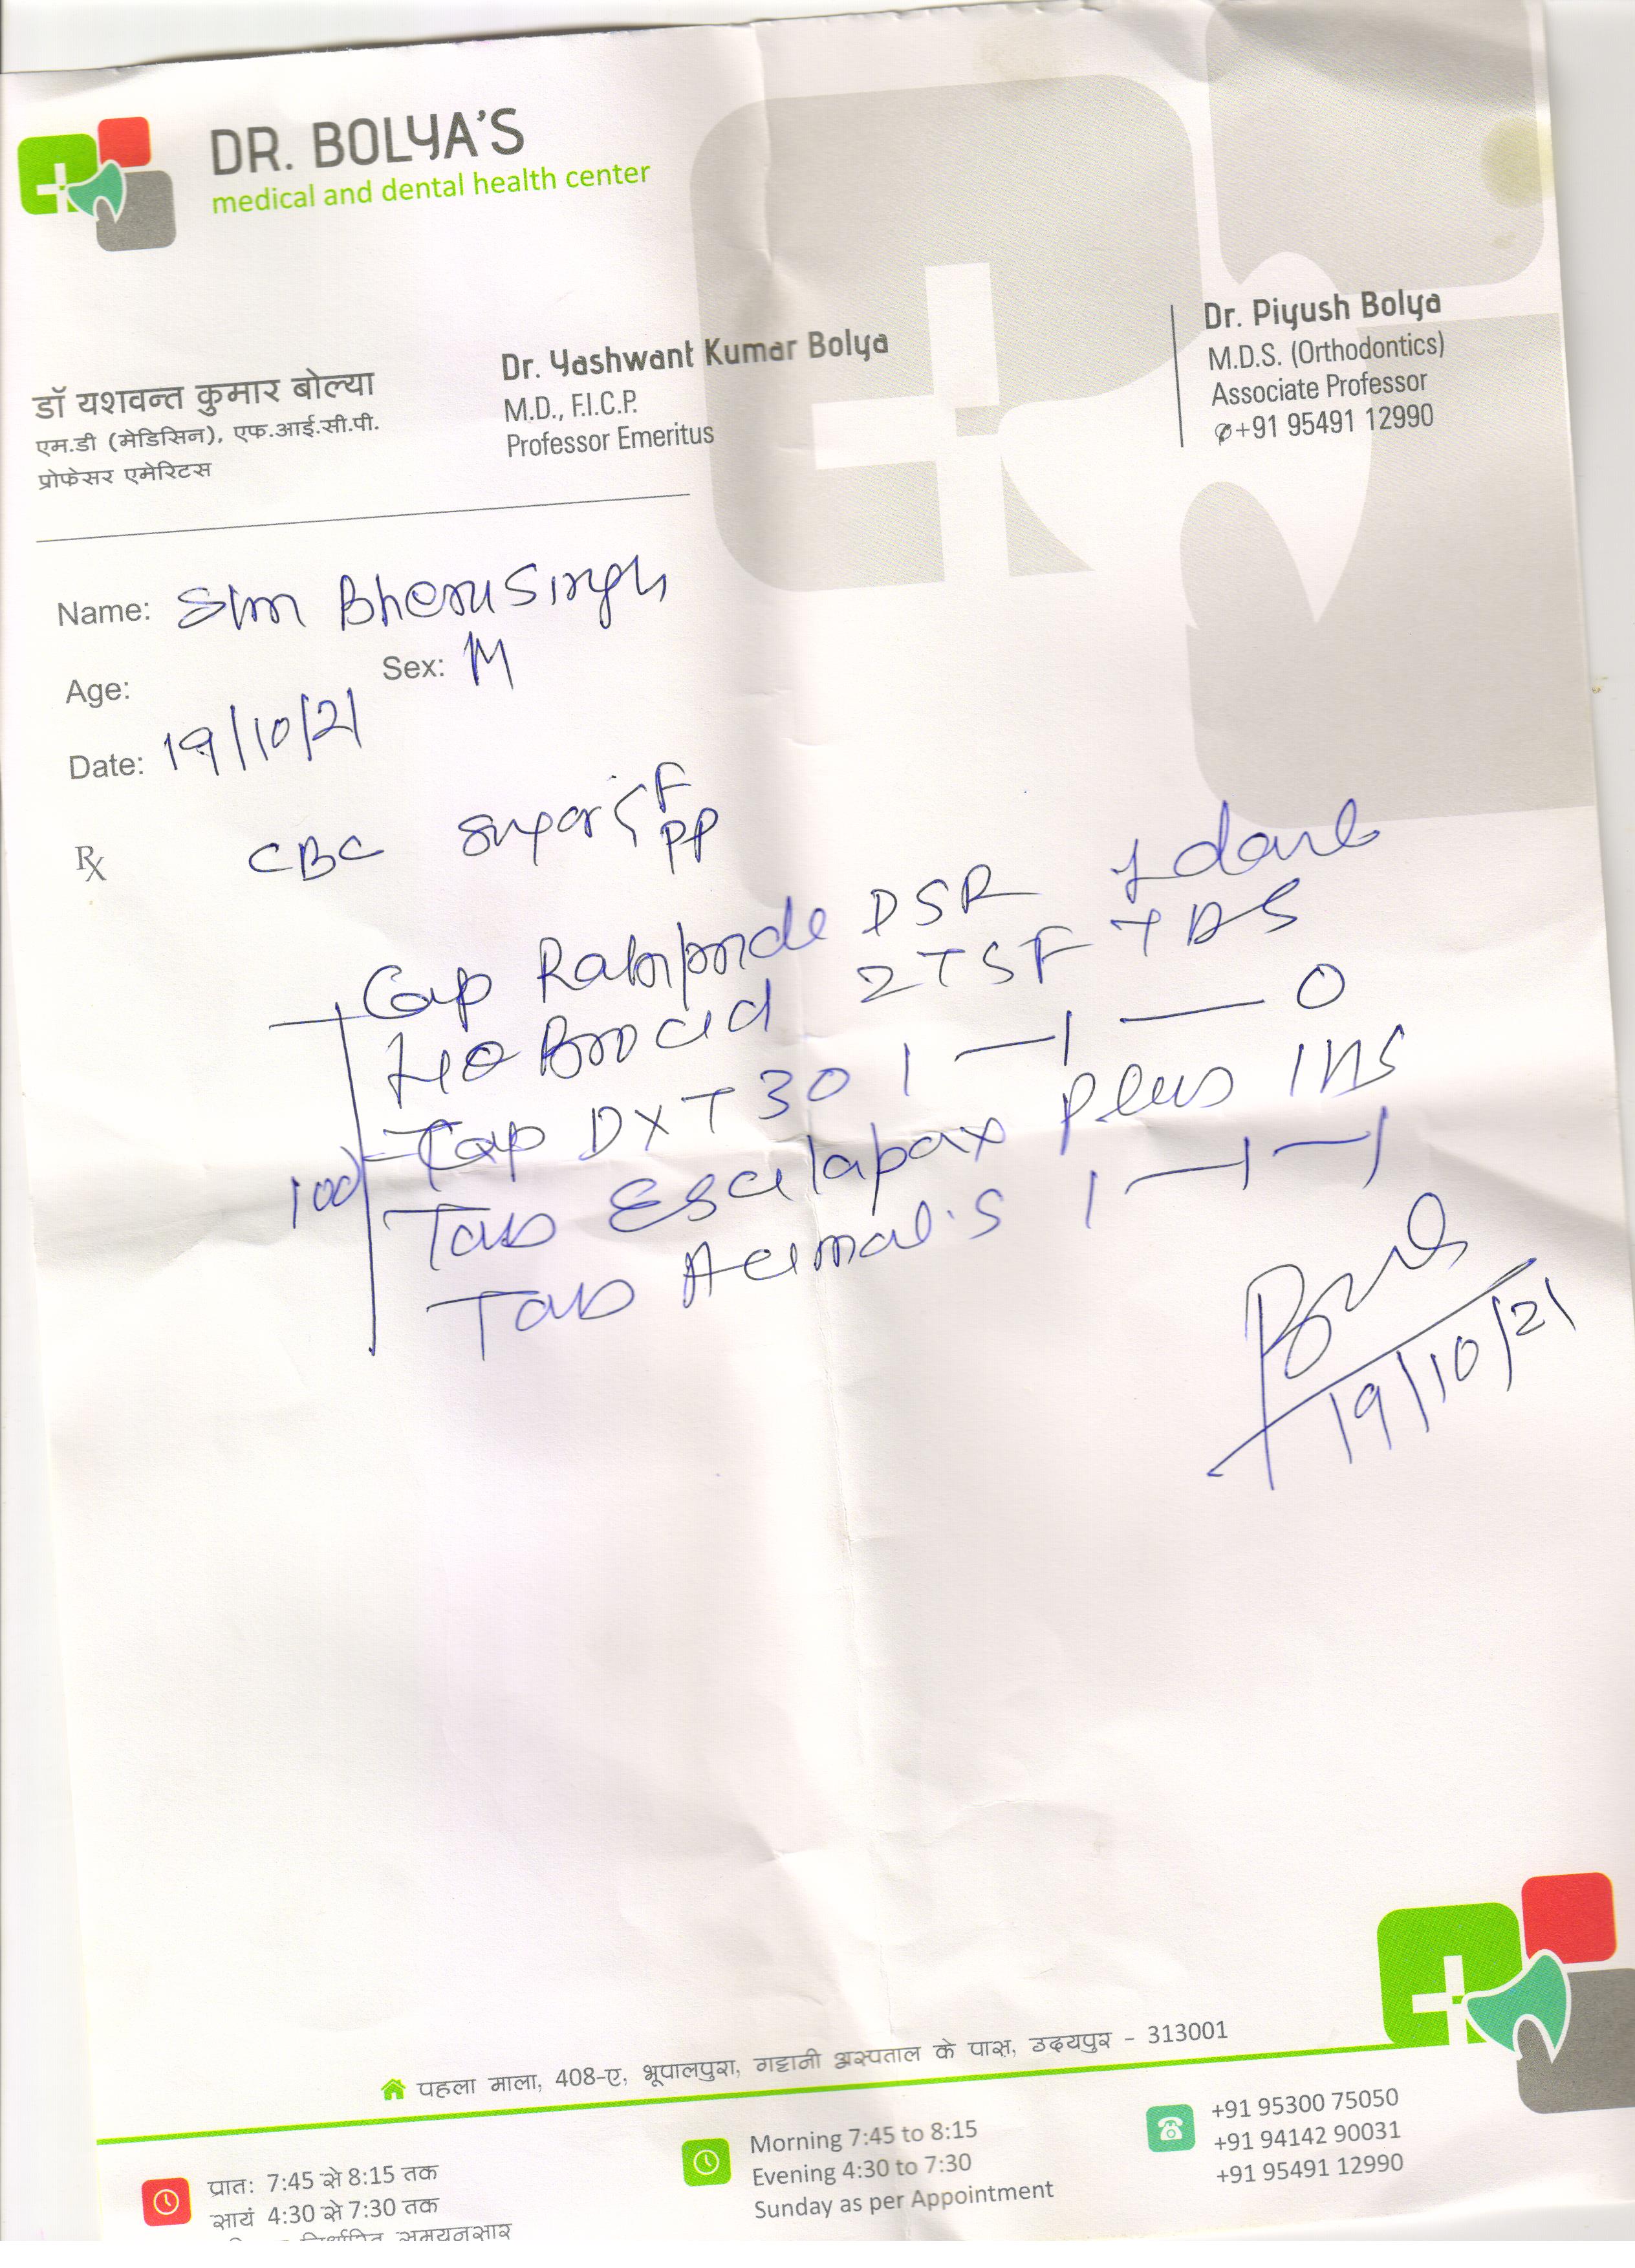 DR. BOLYA'S
medical and dental health center
डॉ यशवन्त कुमार बोल्या
एम.डी (मेडिसिन), एफ.आई.सी.पी.
प्रोफेसर एमेरिटस
Dr. Yashwant Kumar Bolya
M.D., F.I.C.P.
Professor Emeritus
Dr. Piyush Bolya
M.D.S. (Orthodontics)
Associate Professor
+91 95491 12990
Name: Bheru Singh
Age: Sex: M
Date: 19/10/21
Rx CBC F
PP
Cap DSR 1
2TSF TDS
Cap DXT 30 1—1—0
100
Tab Plus 1HS
Tab 1—1—1
19/10/21
पहला माला, 408-ए, भूपालपुरा, गट्टानी अस्पताल के पास, उदयपुर - 313001
प्रात: 7:45 से 8:15 तक
सायं 4:30 से 7:30 तक
समयनुसार
Morning 7:45 to 8:15
Evening 4:30 to 7:30
Sunday as per Appointment
+91 95300 75050
+91 94142 90031
+91 95491 12990